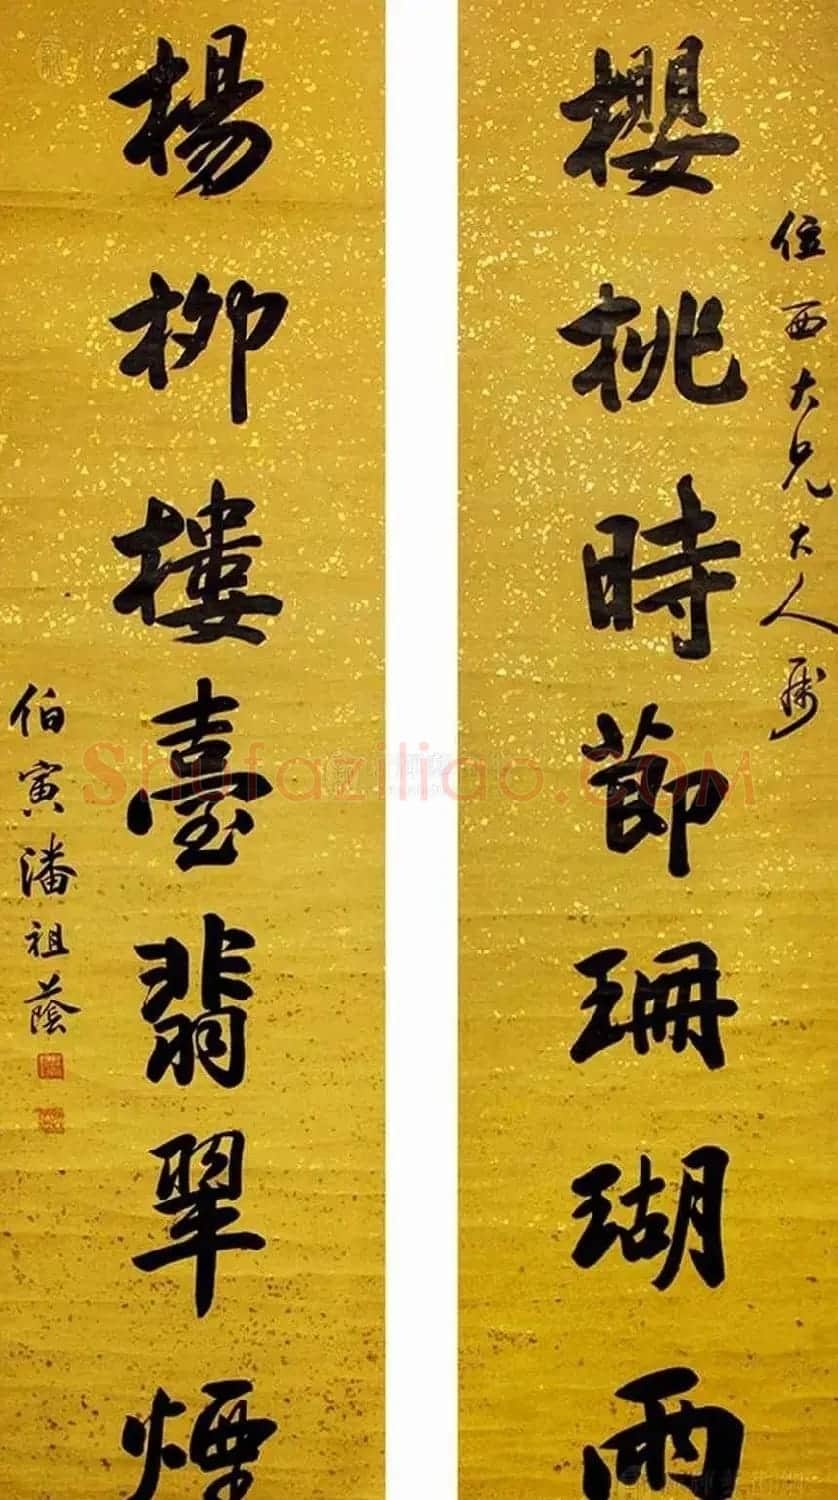 位西大兄大人属
櫻桃時節珊瑚雨
楊柳樓臺翡翠煙
伯寅潘祖蔭
Shufaziliao.COM